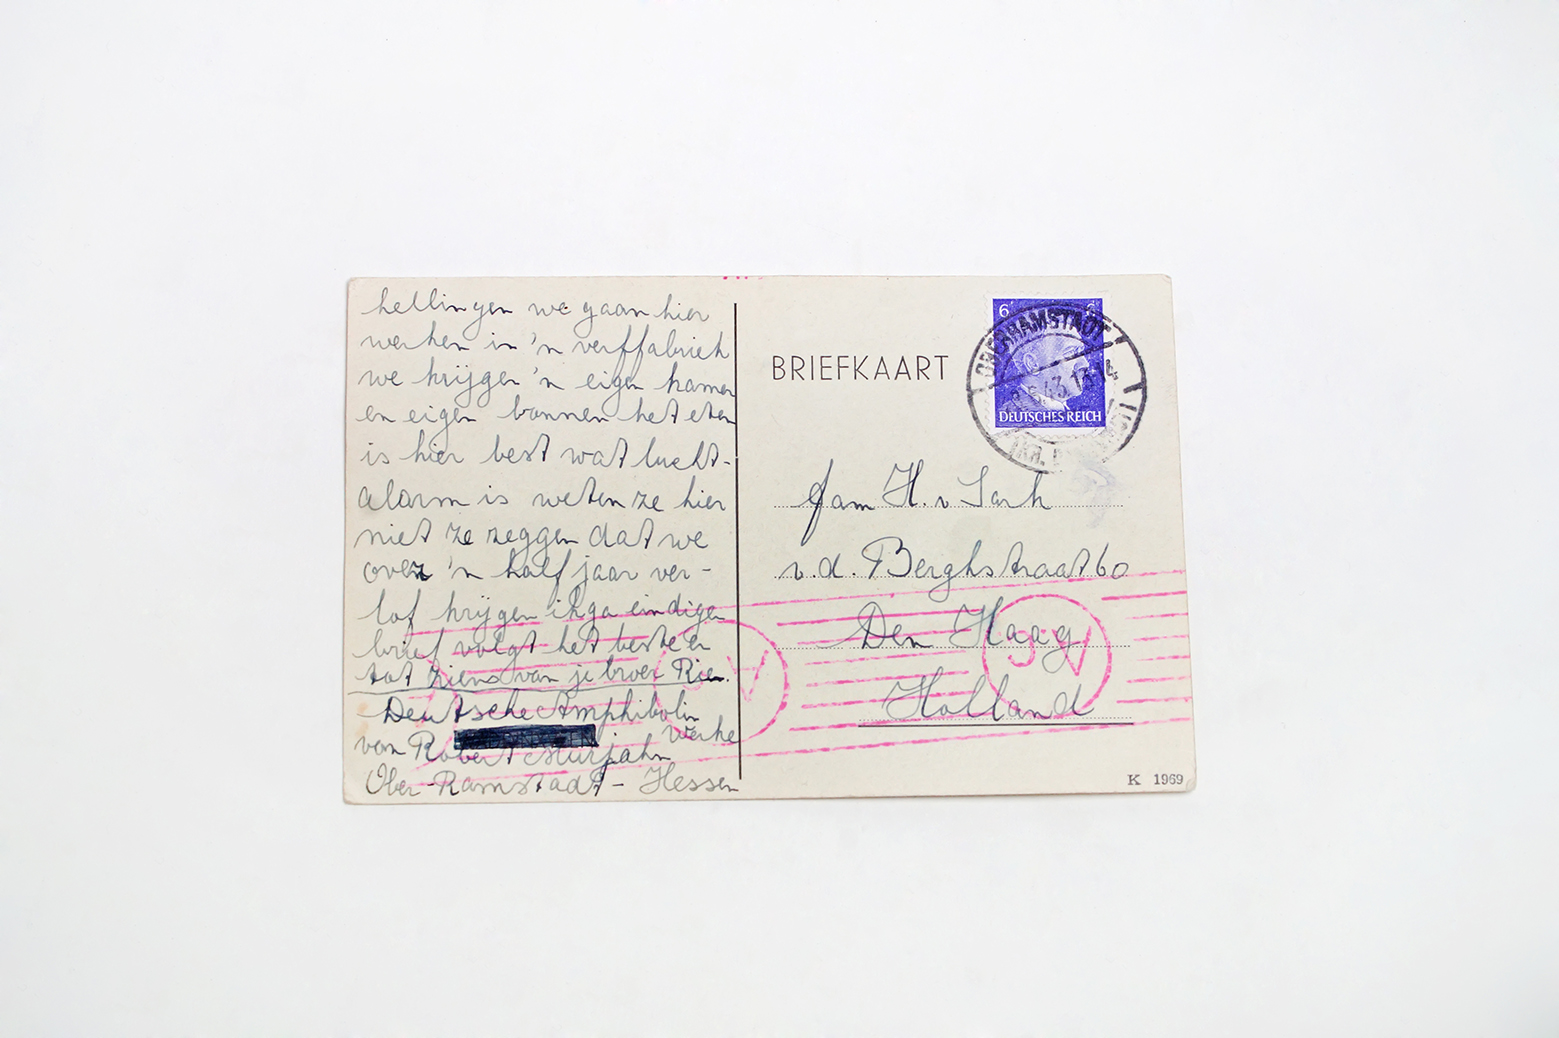 hellingen we gaan hier
werken in 'n verffabriek
we krijgen 'n eigen kamer
en eigen bonnen het eten
is hier best wat lucht-
alarm is weten ze hier
niet ze zeggen dat we
over 'n half jaar ver-
lof krijgen ik ga eindigen
brief volgt het beste en
tot ziens van je broer Rien.
Deutsche Amphibolin
werke
van Robert Murjahn
Ober-Ramstadt - Hessen
BRIEFKAART
6 6
DEUTSCHES REICH
OBERRAMSTADT
5.43.13-14
fam H. v
v.d. Berghstraat 60
Den Haag
Holland
K 1969